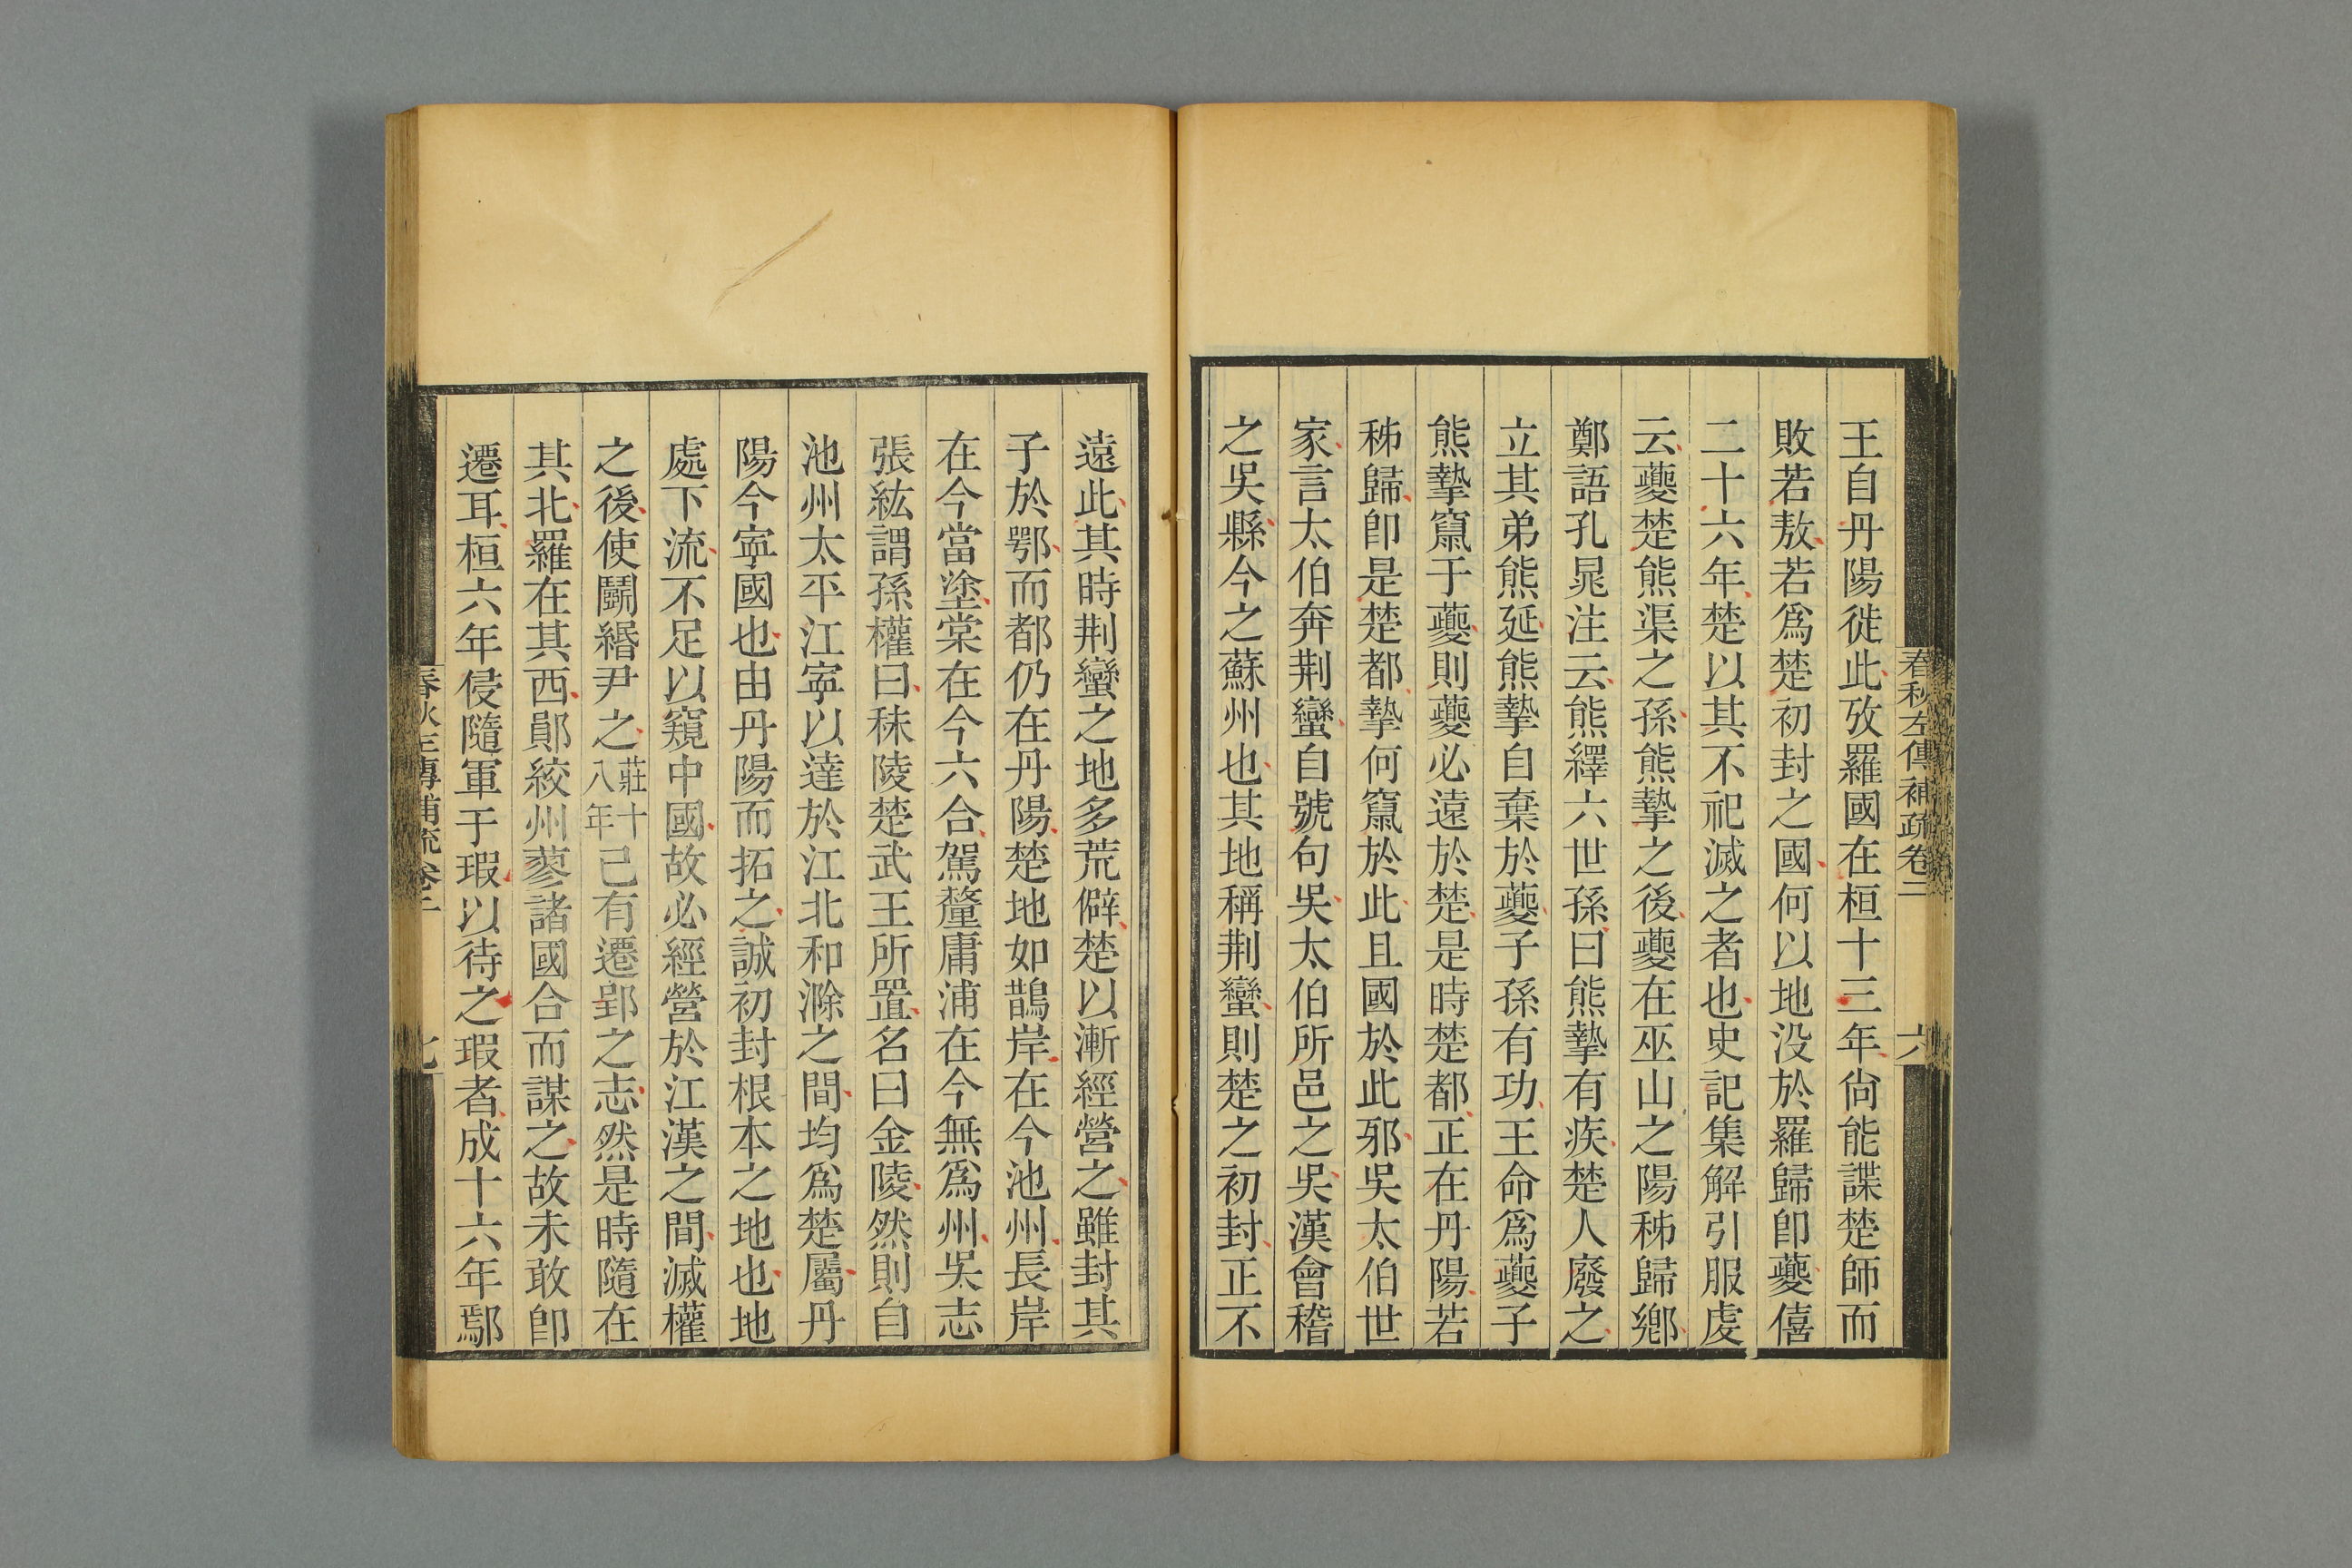 春秋左傳補疏卷二
六
王自丹陽徙此攷羅國在桓十三年尙能諜楚師而
敗若敖若爲楚初封之國何以地没於羅歸卽夔僖
二十六年楚以其不祀滅之者也史記集解引服虔
云夔楚熊渠之孫熊摯之後夔在巫山之陽秭歸鄉
鄭語孔晁注云熊繹六世孫曰熊摯有疾楚人廢之
立其弟熊延熊摯自棄於夔子孫有功王命爲夔子
熊摯竄于夔則夔必遠於楚是時楚都正在丹陽若
秭歸卽是楚都摯何竄於此且國於此邪吳太伯世
家言太伯奔荆蠻自號句吳太伯所邑之吳漢會稽
之吳縣今之蘇州也其地稱荆蠻則楚之初封正不
遠此其時荆蠻之地多荒僻楚以漸經營之雖封其
子於鄂而都仍在丹陽楚地如鵲岸在今池州長岸
在今當塗棠在今六合駕釐庸浦在今無爲州吳志
張紘謂孫權曰秣陵楚武王所置名曰金陵然則自
池州太平江寍以達於江北和滁之間均爲楚屬丹
陽今寍國也由丹陽而拓之誠初封根本之地也地
處下流不足以窺中國故必經營於江漢之間滅權
之後使鬭緡尹之莊十八年已有遷郢之志然是時隨在
其北羅在其西鄖絞州蓼諸國合而謀之故未敢卽
遷耳桓六年侵隨軍于瑕以待之瑕者成十六年鄢
春秋左傳補疏卷二
七